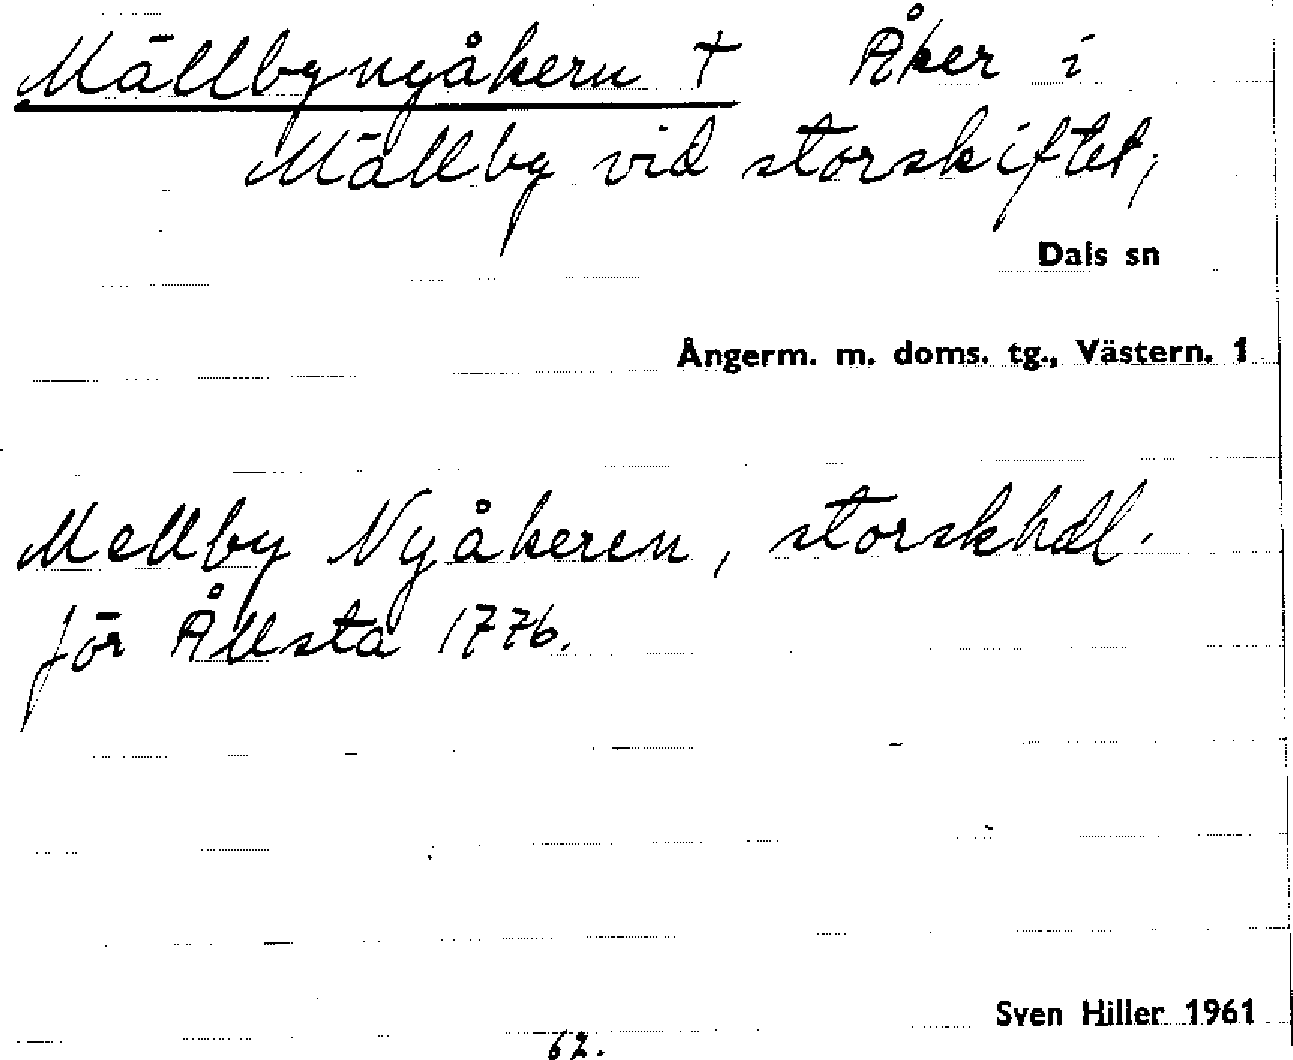 Mällbynyåkern † Åker i
Mällby vid storskiftet,
Dals sn
Ångerm. m. doms. tg., Västern. 1
Mellby Nyåkeren, storskhdl.
för Ållsta 1776.
Sven Hiller 1961
62.